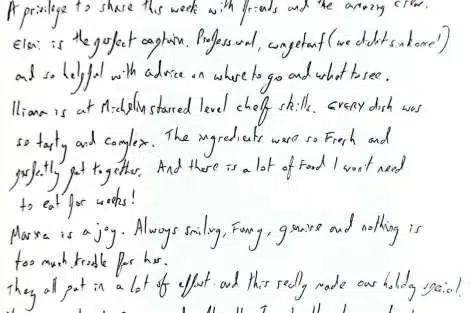 A privilege to share this week with friends and the amazing crew.
Eleni is the perfect captain. Professional, competent (we didn't sink once!)
and so helpful with advice on where to go and what to see.
Iliana is at Michelin starred level chefy skills. Every dish was
so tasty and complex. The ingredients were so fresh and
perfectly put together. And there is a lot of food I won't need
to eat for weeks!
is a joy. Always smiling, funny, genuine and nothing is
too much trouble for her.
They all put in a lot of effort and this really made our holiday special.